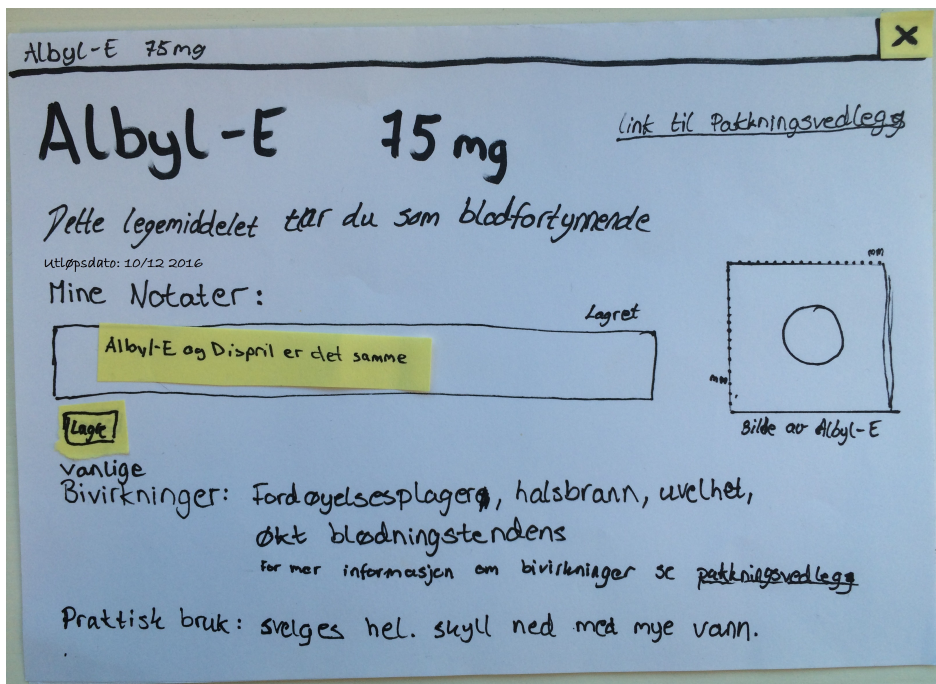 Albyl-E 75mg
X
Albyl-E 75 mg
link til Pakkningsvedlegg
Dette legemiddelet tar du som blodfortynnende
Utløpsdato: 10/12 2016
Mine Notater:
Lagret
Albyl-E og Dispril er det samme
Lagre
mm
mm
Bilde av Albyl-E
vanlige
Bivirkninger: Fordøyelsesplager, halsbrann, uvelhet,
økt blødningstendens
For mer informasjon om bivirkninger se pakkningsvedlegg
Praktisk bruk: svelges hel. skyll ned med mye vann.